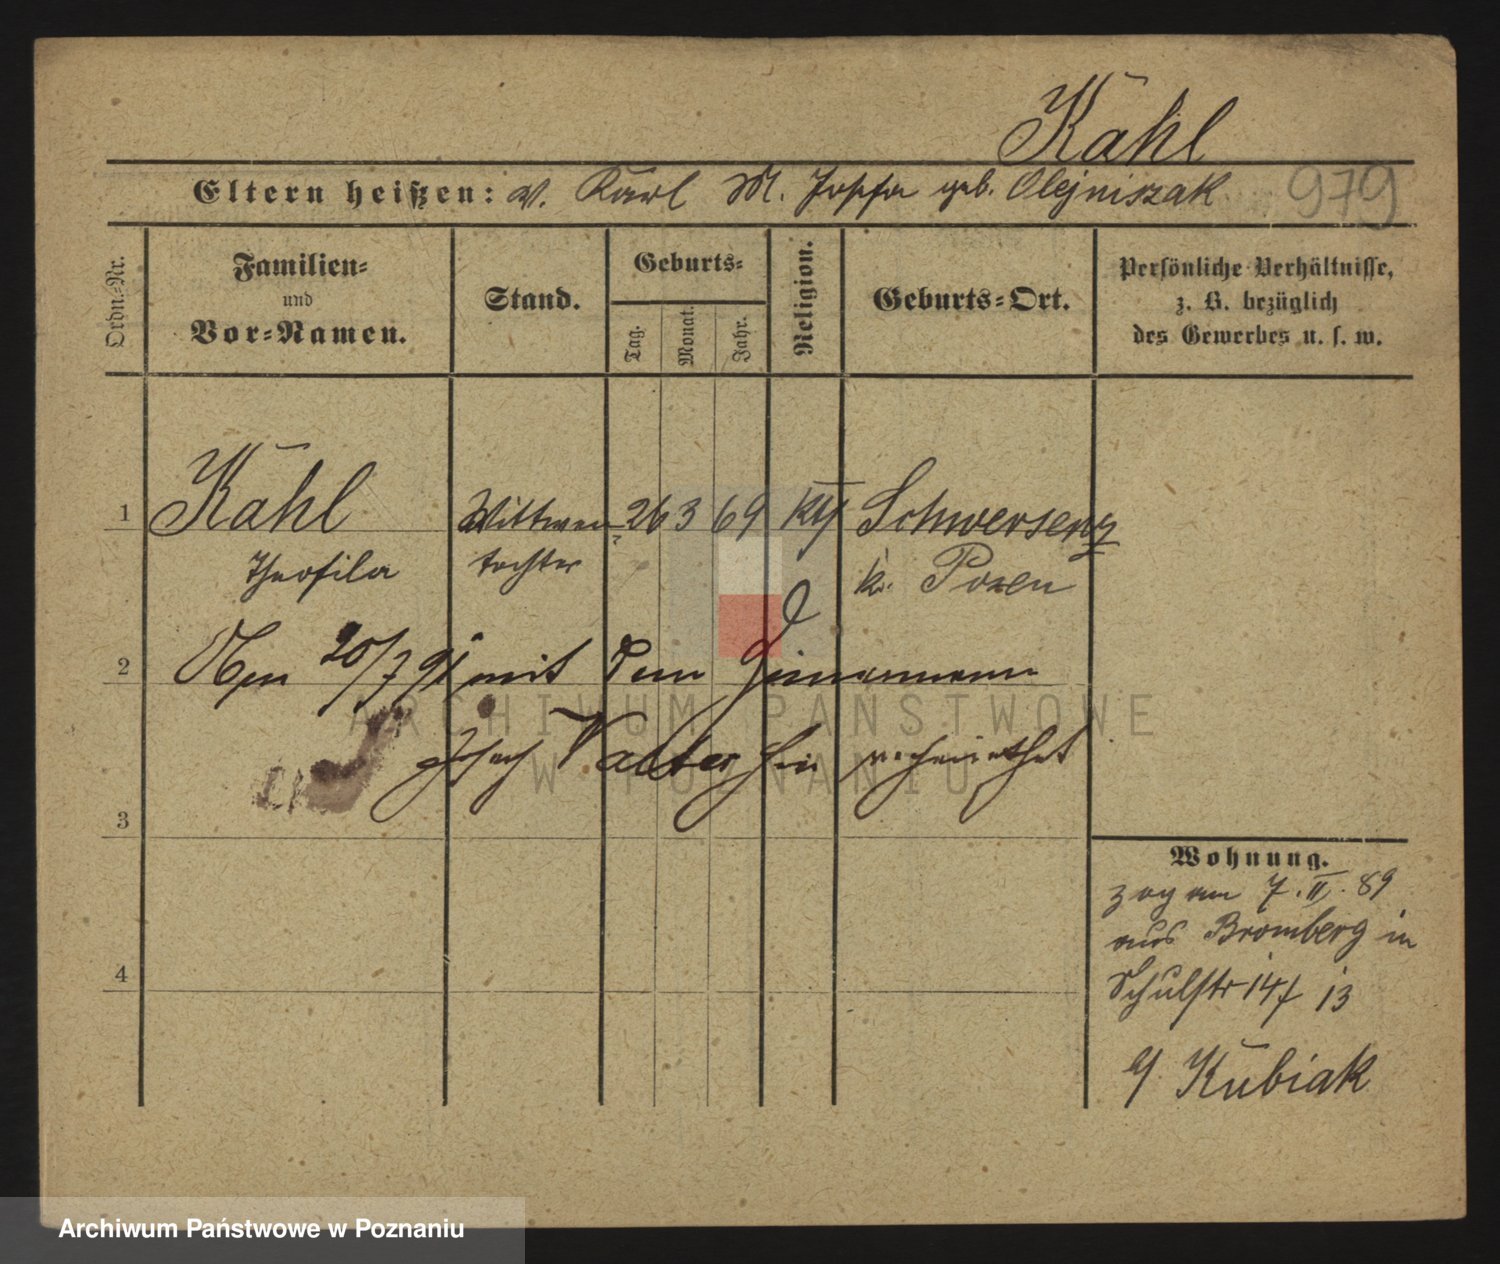 Kahl
Eltern heißen: V. Karl M. Josefa geb. Olejniszak 979
Ordn.-Nr.
Familien-
und
Vor-Namen.
Stand.
Geburts-
Tag.
Monat.
Jahr.
Religion.
Geburts-Ort.
Persönliche Verhältnisse,
z. B. bezüglich
des Gewerbes u. s. w.
1 Kahl Wittwen- 26 3 69 kth Schwersenz
Theofila tochter k. Posen
2 Am 20/7 91 mit dem Zimmermann
Joseph hier verheirathet
3
4
Wohnung.
zog am 7. II. 89
aus Bromberg in
Schulstr 14 / 13
b/ Kubiak
ARCHIWUM PAŃSTWOWE
W POZNANIU
Archiwum Państwowe w Poznaniu